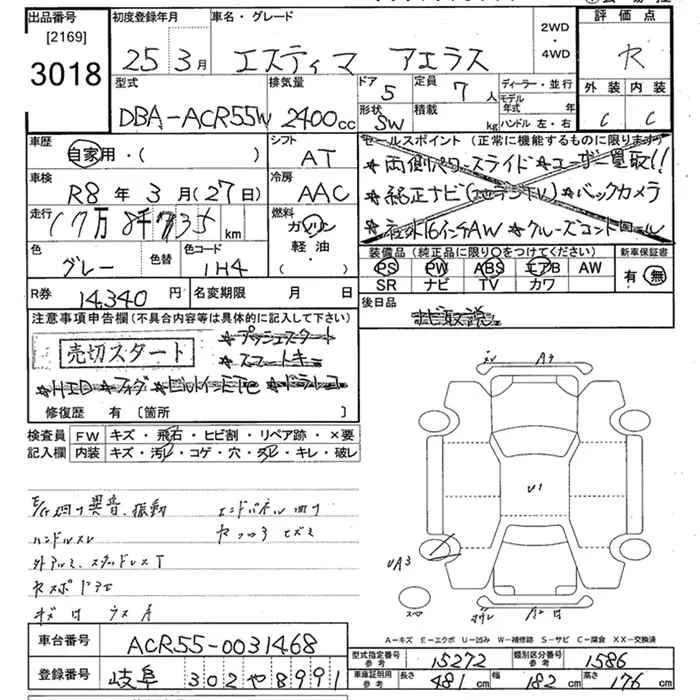 出品番号 初度登録年月 車名・グレード 2WD・4WD 評価点
[2169]
3018 25 3月 エスティマ アエラス
外装 内装
C C
型式 排気量 ドア 定員 ディーラー・並行
5 7人 モデル年式 年
DBA-ACR55W 2400cc 形状 積載 ハンドル 左・右
SW kg
車歴 シフト セールスポイント (正常に機能するものに限ります)
自家用・( ) AT ★両側パワースライド★ユーザー買取!!
車検 冷房 ★純正ナビ(地デジTV)★バックカメラ
R8年 3月(27日) AAC ★社外16インチAW ★クルーズコントロール
走行 燃料
17万 8千735 km ガソリン
軽油・
( )
色 色替 色コード
グレー 1H4
装備品 (純正品に限り○をつけてください) 新車保証書
PS PW ABS エアB AW 有・無
SR ナビ TV カワ
R券 14,340円 名変期限 月 日
後日品
ナビ取説
注意事項申告欄(不具合内容等は具体的に記入して下さい)
売切スタート ★プッシュスタート
★スマートキー
★HID★フォグ★ビルトインETC★ドラレコ
修復歴 有 [箇所 ]
検査員 FW キズ・飛石・ヒビ割・リペア跡・×要
記入欄 内装 キズ・汚レ・コゲ・穴・スレ・キレ・破レ
異音、振動
ハンドルスレ
外アルミ、スタッドレスT
キズ
A2
U1
UA3
スペ
A-キズ E-エクボ U-凹み W-補修跡 S-サビ C-腐食 XX-交換済
車台番号 ACR55-0031468
型式指定番号 参考 15272 類別区分番号 参考 1586
登録番号 岐阜 302 や 8991
車庫証明用 参考 長さ 481cm 幅 182cm 高さ 176cm